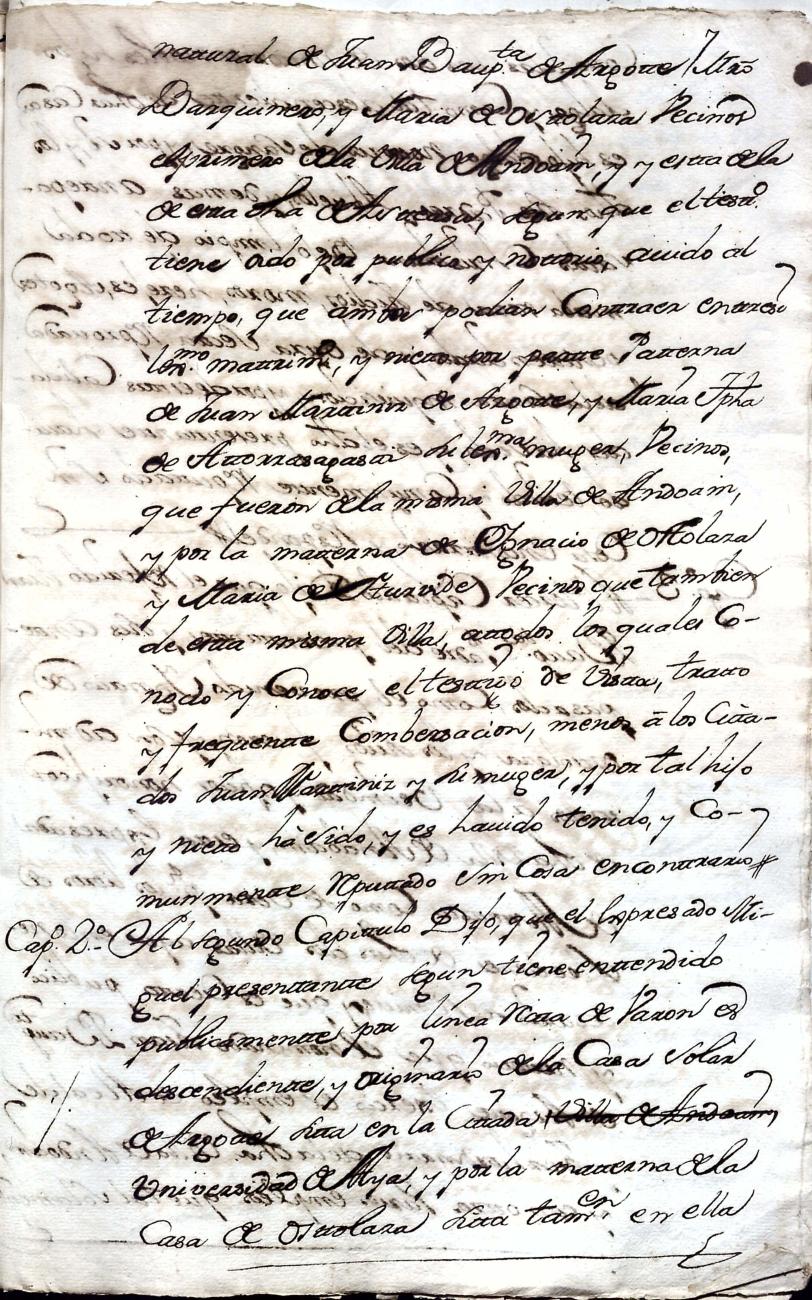 natural de Juan Baup.ta de Argote Mro
Barquinero, y Maria de Ostolaza Vecinos
el primero de la Villa de Andoain, y y esta de la
de esta dha de Aisarna, segun que el testo.
tiene oido por publico y nottorio, auido al
tiempo, que ambos podian Contraer entresi
lexmo. mattrimo, y nieto por partte Patterna
de Juan Marttiniz de Argote, y Maria Jpha
de Attorrasagasti su lexma. muger, Vecinos,
que fueron de la misma Villa de Andoain,
y por la matterna de Ygnacio de Ostolaza
y Maria de Yturvide Vecinos que tambien
de esta misma Villa, attodos los quales Co-
nocio y Conoce el testigo de Vista, tratto
y frequentte Combersacion, menos â los Citta-
dos Juan Marttiniz y su muger, y por tal hijo
y nieto hà sido, y es hauido tenido, y Co-
munmentte Reputtado sin Cosa en conttrario
Capo. 2.o Al segundo Capittulo Dijo, que el Expresado Mi-
guel presenttante segun tiene enttendido
publicamentte por linea Recta de Varon es
descendientte, y originario de la Casa Solar
de Argote sitta en la Cittada Villa de Andoain,
Universidad de Aya, y por la matterna de la
Casa de Osttolaza sitta tamen en ella